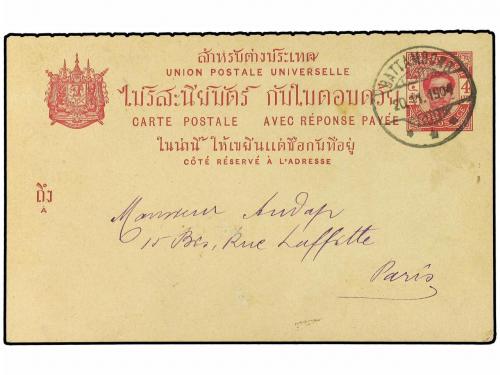 สำหรับต่างประเทศ
UNION POSTALE UNIVERSELLE
ไปรสะนียบัตร์ กับใบตอบด้วย
CARTE POSTALE AVEC RÉPONSE PAYÉE
ในน่านี้ ให้เขียนแต่ชื่อกับที่อยู่
CÔTÉ RÉSERVÉ À L'ADRESSE
BATTAMBONG
20.11.1904
4
ถึง
A
Monsieur Andap
15 Bis, Rue Laffette
Paris